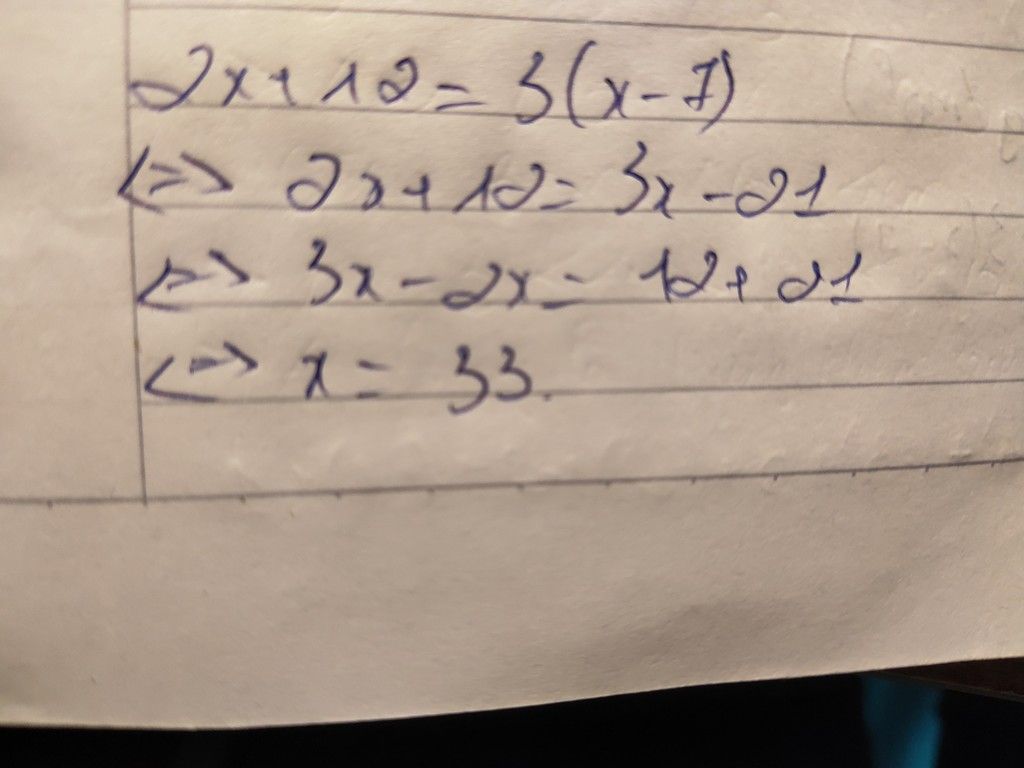 2x+12=3(x-7)
<=> 2x+12=3x-21
<=> 3x-2x=12+21
<=> x=33.